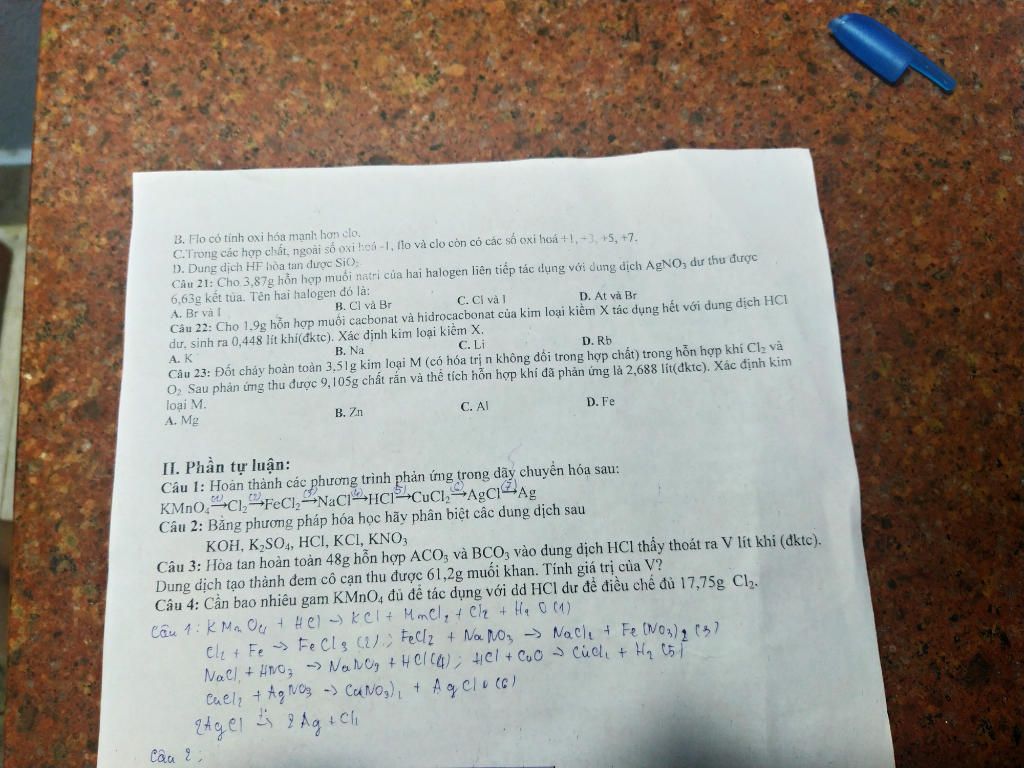 B. Flo có tính oxi hóa mạnh hơn clo.
C.Trong các hợp chất, ngoài số oxi hoá -1, flo và clo còn có các số oxi hoá +1, +3, +5, +7.
D. Dung dịch HF hòa tan được SiO₂
Câu 21: Cho 3,87g hỗn hợp muối natri của hai halogen liên tiếp tác dụng với dung dịch AgNO₃ dư thu được
6,63g kết tủa. Tên hai halogen đó là:
A. Br và I B. Cl và Br C. Cl và I D. At và Br
Câu 22: Cho 1,9g hỗn hợp muối cacbonat và hidrocacbonat của kim loại kiềm X tác dụng hết với dung dịch HCl
dư, sinh ra 0,448 lít khí(đktc). Xác định kim loại kiềm X.
A. K B. Na C. Li D. Rb
Câu 23: Đốt cháy hoàn toàn 3,51g kim loại M (có hóa trị n không đổi trong hợp chất) trong hỗn hợp khí Cl₂ và
O₂. Sau phản ứng thu được 9,105g chất rắn và thể tích hỗn hợp khí đã phản ứng là 2,688 lít(đktc). Xác định kim
loại M.
A. Mg B. Zn C. Al D. Fe
II. Phần tự luận:
Câu 1: Hoàn thành các phương trình phản ứng trong dãy chuyển hóa sau:
KMnO₄ (1)→ Cl₂ (2)→ FeCl₂ (3)→ NaCl (4)→ HCl (5)→ CuCl₂ (6)→ AgCl (7)→ Ag
Câu 2: Bằng phương pháp hóa học hãy phân biệt các dung dịch sau
KOH, K₂SO₄, HCl, KCl, KNO₃
Câu 3: Hòa tan hoàn toàn 48g hỗn hợp ACO₃ và BCO₃ vào dung dịch HCl thấy thoát ra V lít khí (đktc).
Dung dịch tạo thành đem cô cạn thu được 61,2g muối khan. Tính giá trị của V?
Câu 4: Cần bao nhiêu gam KMnO₄ đủ để tác dụng với dd HCl dư để điều chế đủ 17,75g Cl₂.
Câu 1: KMnO₄ + HCl → KCl + MnCl₂ + Cl₂ + H₂O (1)
Cl₂ + Fe → FeCl₃ (2); FeCl₂ + NaNO₃ → NaCl₂ + Fe(NO₃)₂ (3)
NaCl + HNO₃ → NaNO₃ + HCl (4); HCl + CuO → CuCl₂ + H₂ (5)
CuCl₂ + AgNO₃ → Cu(NO₃)₂ + AgCl↓ (6)
2AgCl → 2Ag + Cl₂
Câu 2: